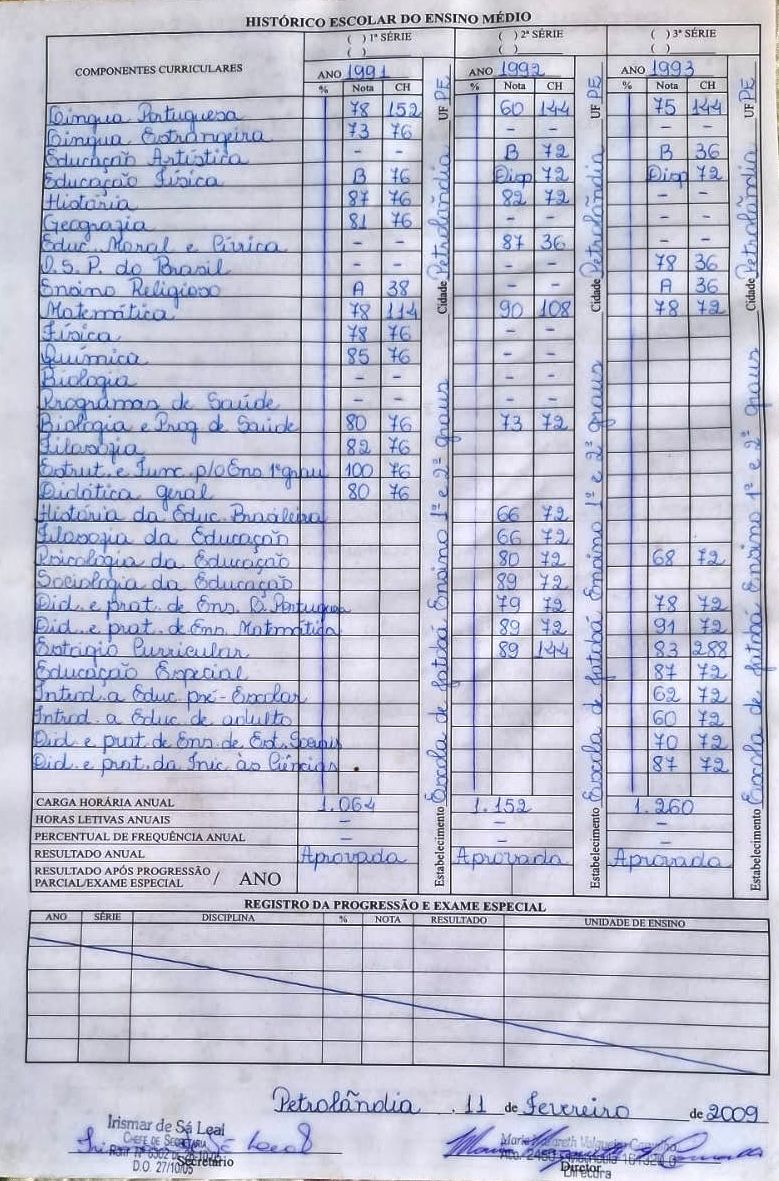 HISTÓRICO ESCOLAR DO ENSINO MÉDIO
COMPONENTES CURRICULARES ( ) 1ª SÉRIE ( ) 2ª SÉRIE ( ) 3ª SÉRIE
( ) ( ) ( )
ANO 1991 ANO 1992 ANO 1993
% Nota CH % Nota CH % Nota CH
Língua Portuguesa 78 152 60 144 75 144
Língua Estrangeira 73 76 - - - -
Educação Artística - - B 72 B 36
Educação Física B 76 Disp 72 Disp 72
História 87 76 82 72 - -
Geografia 81 76 - - - -
Educ. Moral e Cívica - - 87 36 - -
O.S.P. do Brasil - - - - 78 36
Ensino Religioso A 38 - - A 36
Matemática 78 114 90 108 78 72
Física 78 76 - -
Química 85 76 - -
Biologia - - - -
Programas de Saúde - - - -
Biologia e Prog de Saúde 80 76 73 72
Filosofia 82 76
Estrut. e Func p/o Ens 1º grau 100 76
Didática geral 80 76
História da Educ. Brasileira 66 72
Filosofia da Educação 66 72
Psicologia da Educação 80 72 68 72
Sociologia da Educação 89 72
Did. e prat. de Ens. L. Portuguesa 79 72 78 72
Did. e prat. de Ens. Matemática 89 72 91 72
Estágio Curricular 89 144 83 288
Educação Especial 87 72
Introd. a Educ pré-Escolar 62 72
Introd. a Educ de adulto 60 72
Did e prat de Ens. de Est. Sociais 70 72
Did. e prat. da Inic. às Ciências 87 72
CARGA HORÁRIA ANUAL 1.064 1.152 1.260
HORAS LETIVAS ANUAIS - - -
PERCENTUAL DE FREQUÊNCIA ANUAL - - -
RESULTADO ANUAL Aprovada Aprovada Aprovada
RESULTADO APÓS PROGRESSÃO
PARCIAL/EXAME ESPECIAL / ANO
Estabelecimento Escola de Jatobá Ensino 1º e 2º graus Cidade Petrolândia UF PE
Estabelecimento Escola de Jatobá Ensino 1º e 2º graus Cidade Petrolândia UF PE
Estabelecimento Escola de Jatobá Ensino 1º e 2º graus Cidade Petrolândia UF PE
REGISTRO DA PROGRESSÃO E EXAME ESPECIAL
ANO SÉRIE DISCIPLINA % NOTA RESULTADO UNIDADE DE ENSINO
Petrolândia, 11 de Fevereiro de 2009
Irismar de Sá Leal
CHEFE DE SECRETARIA
D.O. 27/10/05
Secretário
Diretor
Diretora